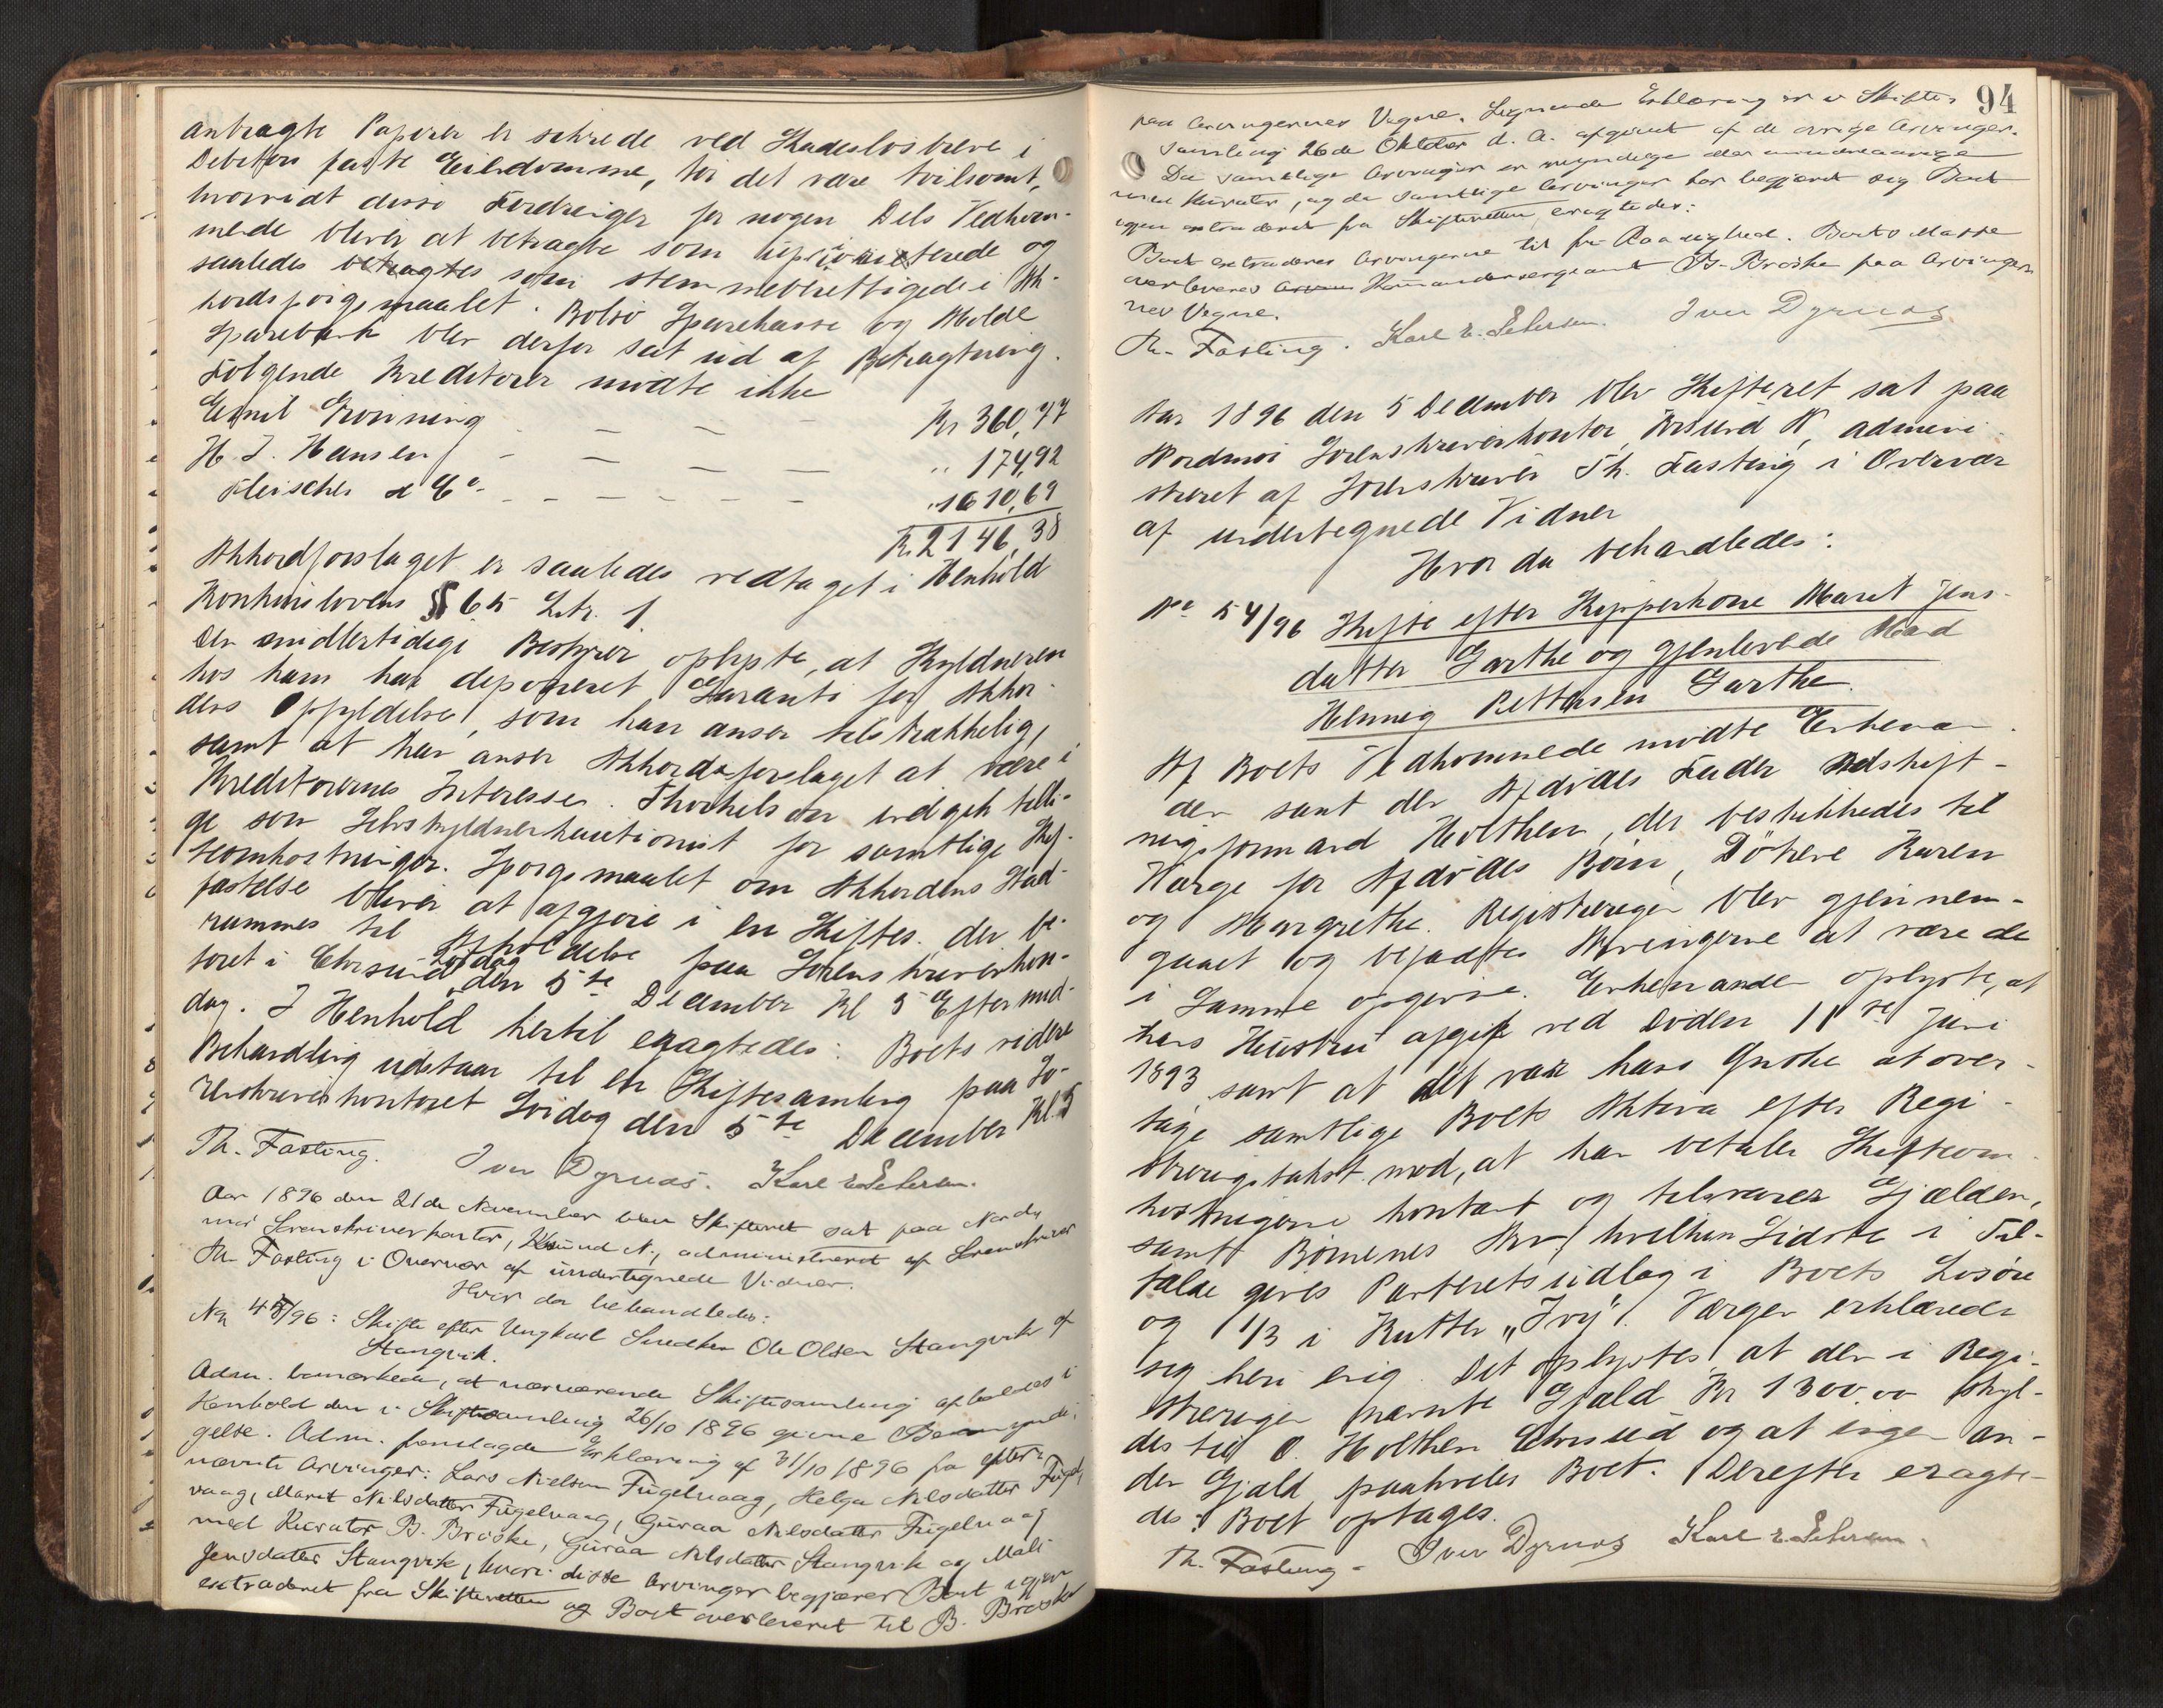 antragte Papirer er sikrede ved Skadesløsbreve i
Debitors faste Eiendomme, tør det være tvilsomt,
hvorvidt disse Fordringer for nogen Dels Vedkom-
mende bliver at betragte som uprioriterede og
saaledes betragtes som stemmeberettigede i Ak-
kordspørgsmaalet. Bolsø Sparekasse og Molde
Sparebank blev derfor sat ud af Betragtning.
Følgende Kreditorer mødte ikke
Emil Grønning - - - Kr 360,77
H. J. Hansen - - - - " 174,92
Fleischer & Co - - - - - " 1610,69
Kr. 2146,38
Akkordforslaget er saaledes vedtaget i Henhold
Konkurslovens § 65 Litr. 1
Den midlertidige Bestyrer oplyste, at Skyldneren
hos ham har deponeret Garanti for Akkor-
dens Opfyldelse, som han anser tilstrækkelig,
samt at han anser Akkordsforslaget at være i
Kreditorernes Interesse. Thorkelsen indgik tilli-
ge som Selvskyldnerkautionist for samtlige Skif-
teomkostninger. Spørgsmaalet om Akkordens Stad-
fæstelse bliver at afgjøre i en Skiftes. der be-
rammes til Afholdelse paa Sorenskriverkon-
toret i Chrsund Lørdag den 5te December Kl 5 Eftermid-
dag. I Henhold hertil eragtedes: Boets videre
Behandling udstaar til en Skiftesamling paa So-
renskriverkontoret Lørdag den 5te December Kl. 5
Th. Fasting. Iver Dyrnæs. Karl E. Petersen.
Aar 1896 den 21de November blev Skifteret sat paa Nord-
møre Sorenskriverkontor, Krsund N., administreret af Sorenskriver
Th. Fasting i Overvær af undertegnede Vidner.
Hvor da behandledes:
No 48/96: Skifte efter Ungkarl Snedker Ole Olsen Stangvik af
Stangvik.
Adm. bemærkede, at nærværende Skiftesamling afholdes i
Henhold den i Skiftesamling 26/10 1896 givne Bemyndi-
gelse. Adm. fremlagde Erklæring af 31/10 1896 fra efter-
nævnte Arvinger: Lars Nielsen Fugelvaag, Helga Nilsdatter Fugel-
vaag, Marit Nilsdatter Fugelvaag, Guraa Nilsdatter Fugelvaag
med Kurator B. Brøske, Guraa Nilsdatter Stangvik og Mali
Jensdatter Stangvik, hvori disse Arvinger begjærer Boet igjen
extraderet fra Skifteretten og Boet overleveret til B. Brøske
94
paa Arvingernes Vegne. Lignende Erklæring er i Skifte-
samling 26de Oktober d. A. afgivet af de øvrige Arvinger.
Da samtlige Arvinger er myndige eller mindreaarige
med Kurator, og da samtlige Arvinger har begjæret sig Boet
igjen extraderet fra Skifteretten, eragtedes:
Boet extraderes Arvingerne til fri Raadighed. Boets Masse
overleveres Kommandersergeant B. Brøske paa Arvinger-
nes Vegne.
Th. Fasting. Karl E. Petersen. Iver Dyrnæs
Aar 1896 den 5 December blev Skifteret sat paa
Nordmør Sorenskriverkontor, Krsund N, admini-
streret af Sorenskriver Th. Fasting i Overvær
af undertegnede Vidner
Hvor da behandledes:
No 54/96 Skifte efter Skipperkone Marit Jens-
datter Garthe og gjenlevende Mand
Henning Pettersen Garthe.
Af Boets Vedkommende mødte Enkeman-
den samt den Afdødes Fader Udskift-
ningsformand Holthen, der beskikkedes til
Værge for Afdødes Børn, Døtrene Karen
og Margrethe. Registreringen blev gjennem-
gaaet og bejaedes Arvingerne at være de
i Samme opgivne. Enkemanden oplyste, at
hans Hustru afgik ved Døden 11te Juni
1893 samt at det var hans Ønske at over-
tage samtlige Boets Aktiva efter Regi-
streringstakst mod, at han betaler Skifteom-
kostningerne kontant og tilsvarer Gjælden,
samt Børnenes Arv, hvilken Sidste i Til-
fælde gives Panteretsudlæg i Boets Løsøre
og 1/3 i Kutter "Ivy". Værgen erklærede
sig heri enig. Det oplystes, at den i Regi-
streringen nævnte Gjæld Kr 1300.00 skyl-
des til O. Holthen Chrsund og at ingen an-
den Gjæld paahviler Boet. Derefter eragte-
des: Boet optages.
Th. Fasting - Iver Dyrnæs Karl E. Petersen.